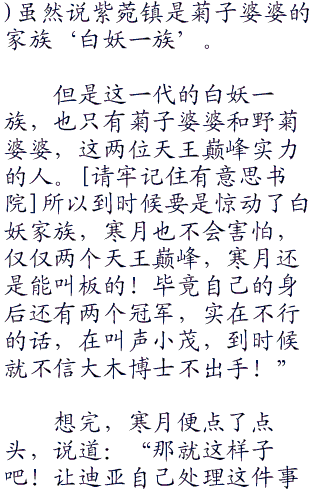 )虽然说紫菀镇是菊子婆婆的
家族‘白妖一族’。
但是这一代的白妖一
族，也只有菊子婆婆和野菊
婆婆，这两位天王巅峰实力
的人。[请牢记住有意思书
院]所以到时候要是惊动了白
妖家族，寒月也不会害怕，
仅仅两个天王巅峰，寒月还
是能叫板的！毕竟自己的身
后还有两个冠军，实在不行
的话，在叫声小茂，到时候
就不信大木博士不出手！”
想完，寒月便点了点
头，说道：“那就这样子
吧！让迪亚自己处理这件事